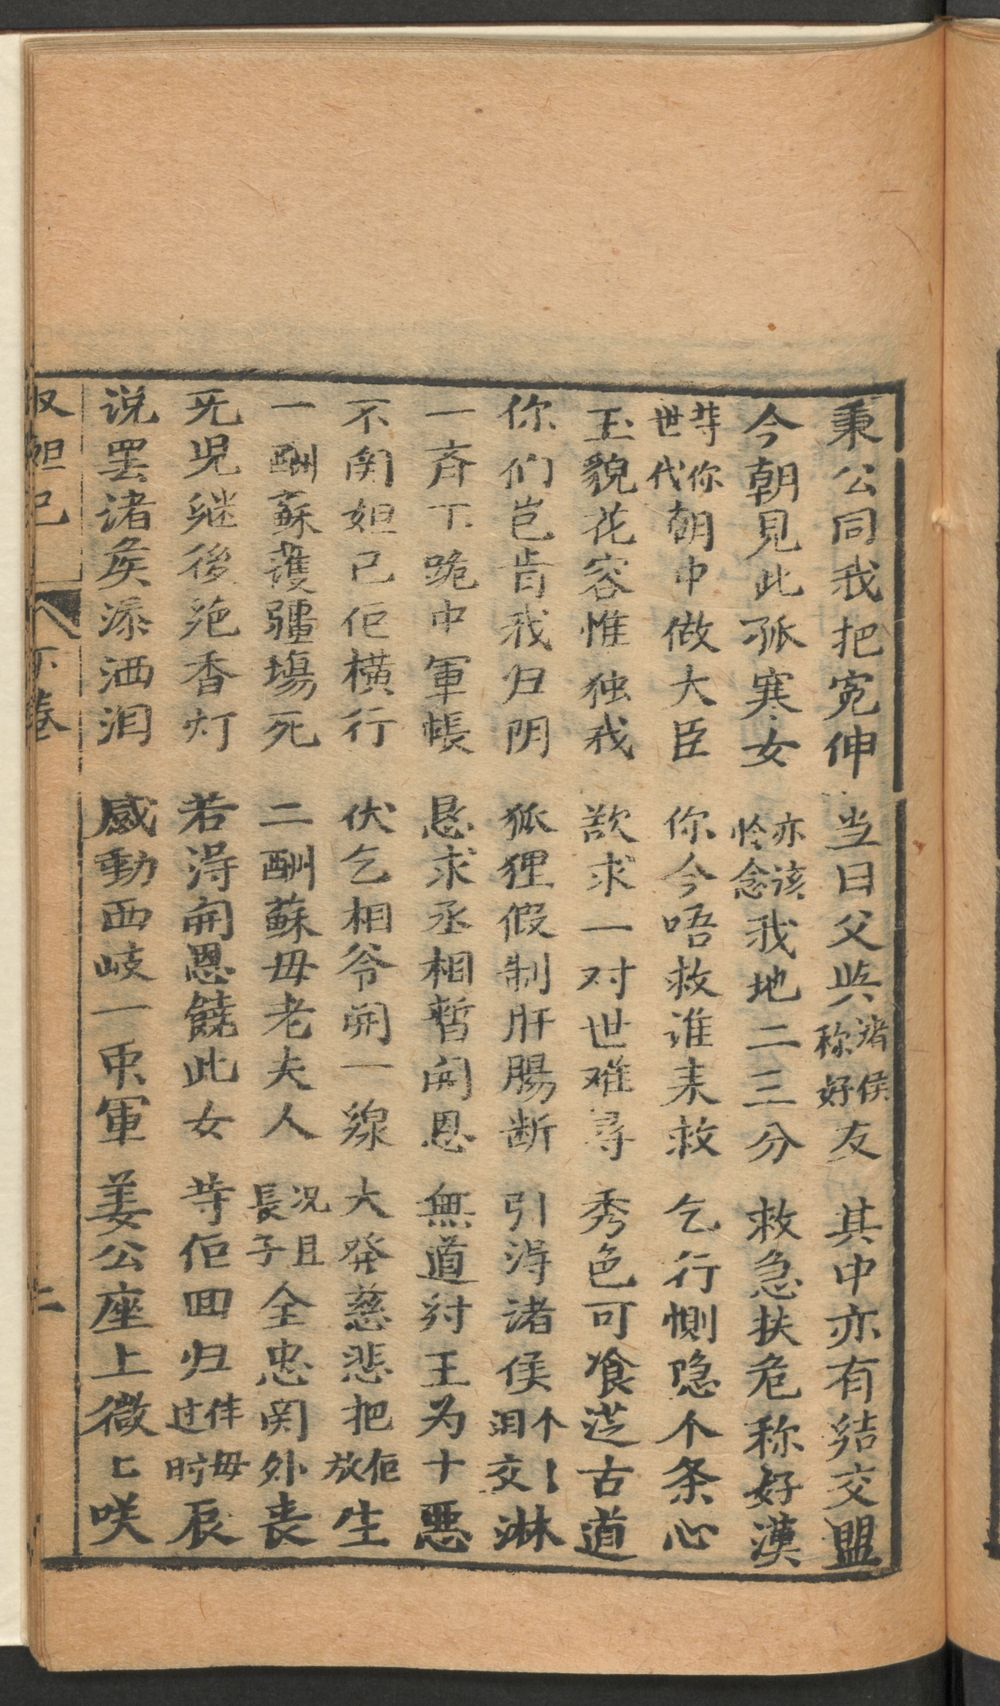 秉公同我把宽伸　当日父與诸侯称好友　其中亦有结交盟
今朝見此孤寒女　亦该怜念我地二三分　救急扶危称好漢
䓁你世代朝中做大臣　你今唔救谁来救　乞行惻隐个条心
玉貌花容惟独我　欲求一对世难尋　秀色可飡送古道
你们岂肯我归阴　狐狸假制肝腸断　引得诸侯个〻泪交淋
一斉下跪中軍帳　恳求丞相暂開恩　無道紂王为十悪
不関妲己佢横行　伏乞相爷開一線　大発慈悲把佢放生
一酬蘇護疆場死　二酬蘇毋老夫人　况且長子全忠関外丧
无児継後絶香灯　若得開恩饒此女　䓁佢回归伴毋过时辰
说罢诸侯添洒泪　感動西岐一衆軍　姜公座上微匕咲
妲己　下卷　二